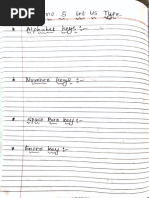 5 Let Us Type
* Alphabet keys :-
* Number keys :-
* Space Bar key :-
* Enter key :-